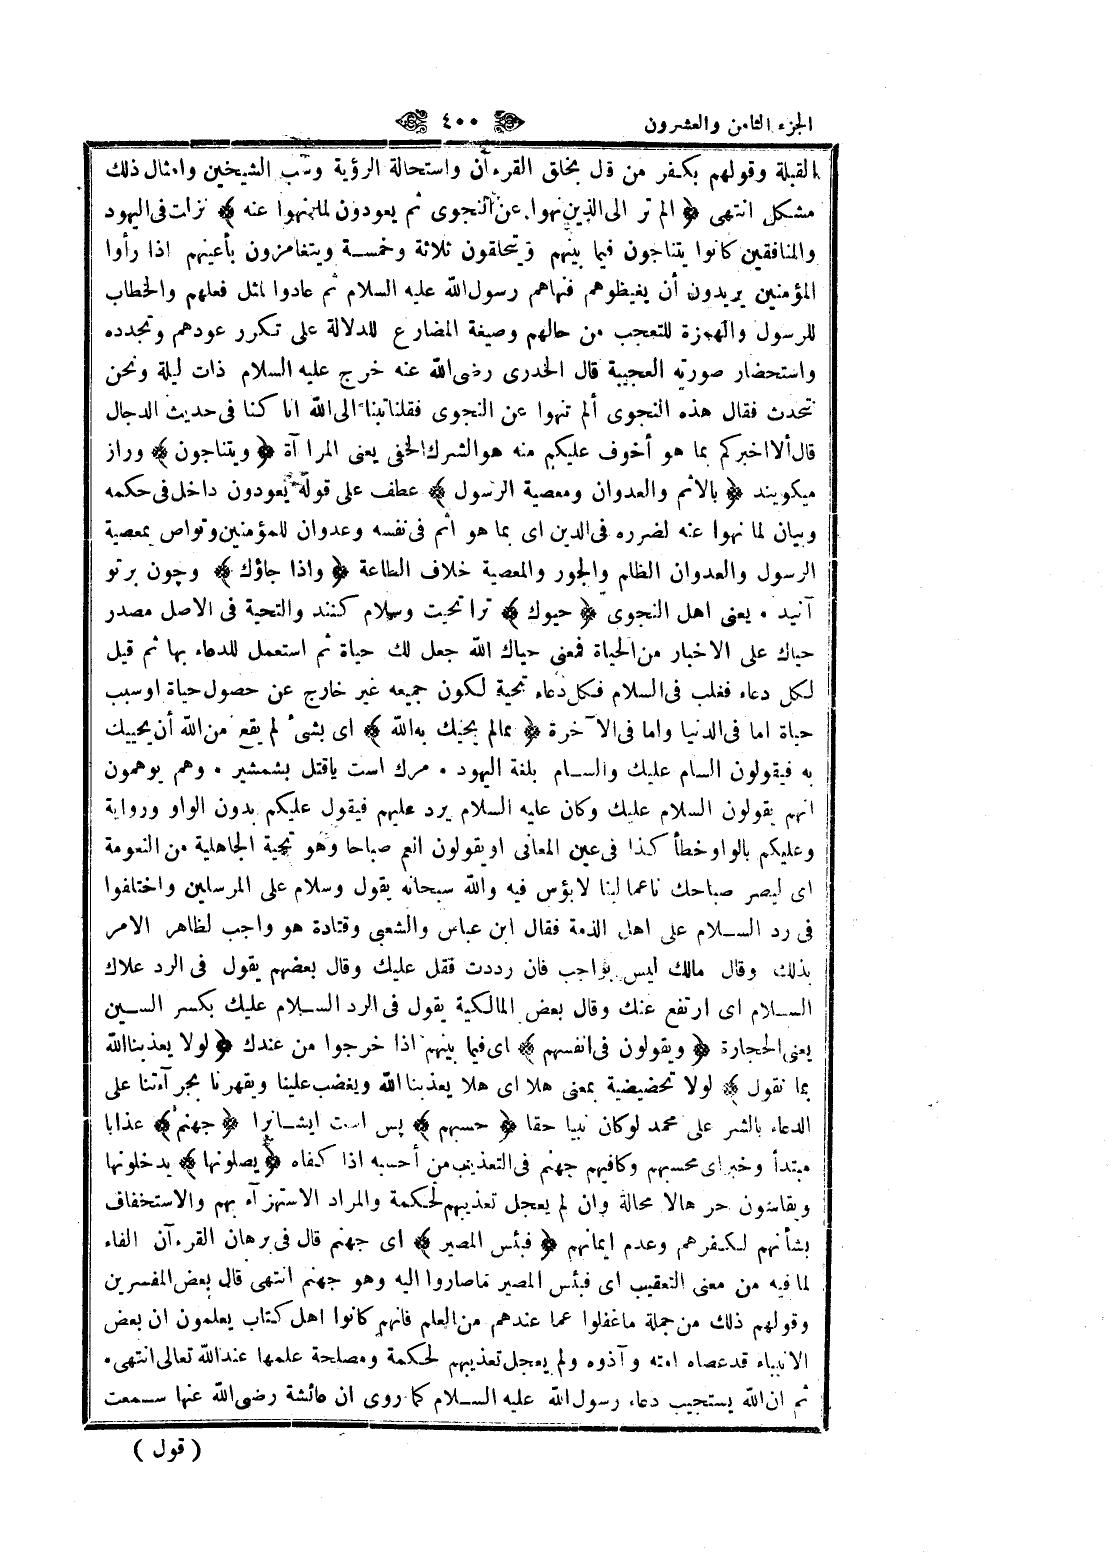 الجزء الثامن والعشرون
٤٠٠
القبلة وقولهم بكفر من قال بخلق القرءآن واستحالة الرؤية وسب الشيخين وامثال ذلك
مشكل انتهى ﴿ الم تر الى الذين نهوا عن النجوى ثم يعودون لما نهوا عنه ﴾ نزلت فى اليهود
والمنافقين كانوا يتناجون فيما بينهم ويتحلقون ثلاثة وخمسة ويتغامزون بأعينهم اذا رأوا
المؤمنين يريدون أن يغيظوهم فنهاهم رسول الله عليه السلام ثم عادوا لمثل فعلهم والخطاب
للرسول والهمزة للتعجب من حالهم وصيغة المضارع للدلالة على تكرر عودهم وتجدده
واستحضار صورته العجيبة قال الخدرى رضى الله عنه خرج عليه السلام ذات ليلة ونحن
نتحدث فقال هذه النجوى ألم تنهوا عن النجوى فقلنا تبنا الى الله انا كنا فى حديث الدجال
قال ألا اخبركم بما هو أخوف عليكم منه هو الشرك الخفى يعنى المرا آة ﴿ ويتناجون ﴾ وراز
ميكويند ﴿ بالاثم والعدوان ومعصية الرسول ﴾ عطف على قوله يعودون داخل فى حكمه
وبيان لما نهوا عنه لضرره فى الدين اى بما هو اثم فى نفسه وعدوان للمؤمنين وتواص بمعصية
الرسول والعدوان الظلم والجور والمعصية خلاف الطاعة ﴿ واذا جاؤك ﴾ وچون برتو
آنيد ٠ يعنى اهل النجوى ﴿ حيوك ﴾ ترا تحيت وسلام كنند والتحية فى الاصل مصدر
حياك على الاخبار من الحياة فمعنى حياك الله جعل لك حياة ثم استعمل للدعاء بها ثم قيل
لكل دعاء فغلب فى السلام فكل دعاء تحية لكون جميعه غير خارج عن حصول حياة اوسبب
حياة اما فى الدنيا واما فى الا آخرة ﴿ بمالم يحيك به الله ﴾ اى بشئ لم يقع من الله أن يحييك
به فيقولون السام عليك والسام بلغة اليهود ٠ مرك است ياقتل بشمشير ٠ وهم يوهمون
انهم يقولون السلام عليك وكان عليه السلام يرد عليهم فيقول عليكم بدون الواو ورواية
وعليكم بالواو خطأ كذا فى عين المعانى او يقولون انعم صباحا وهو تحية الجاهلية من النعومة
اى ليصر صباحك ناعما لينا لا بؤس فيه والله سبحانه يقول وسلام على المرسلين واختلفوا
فى رد السلام على اهل الذمة فقال ابن عباس والشعبى وقتادة هو واجب لظاهر الامر
بذلك وقال مالك ليس بواجب فان رددت فقل عليك وقال بعضهم يقول فى الرد علاك
السلام اى ارتفع عنك وقال بعض المالكية يقول فى الرد السلام عليك بكسر السين
يعنى الحجارة ﴿ ويقولون فى انفسهم ﴾ اى فيما بينهم اذا خرجوا من عندك ﴿ لولا يعذبنا الله
بما نقول ﴾ لولا تحضيضية بمعنى هلا اى هلا يعذبنا الله ويغضب علينا ويقهرنا بجرآءتنا على
الدعاء بالشر على محمد لو كان نبيا حقا ﴿ حسبهم ﴾ پس است ايشانرا ﴿ جهنم ﴾ عذابا
مبتدأ وخبر اى محسبهم وكافيهم جهنم فى التعذيب من أحسبه اذا كفاه ﴿ يصلونها ﴾ يدخلونها
ويقاسون حرها لا محالة وان لم يعجل تعذيبهم لحكمة والمراد الاستهزآء بهم والاستخفاف
بشأنهم لكفرهم وعدم ايمانهم ﴿ فبئس المصير ﴾ اى جهنم قال فى برهان القرءآن الفاء
لما فيه من معنى التعقيب اى فبئس المصير ماصاروا اليه وهو جهنم انتهى قال بعض المفسرين
وقولهم ذلك من جملة ماغفلوا عما عندهم من العلم فانهم كانوا اهل كتاب يعلمون ان بعض
الانبياء قد عصاه امته وآذوه ولم يعجل تعذيبهم لحكمة ومصلحة علمها عند الله تعالى انتهى ٠
ثم ان الله يستجيب دعاء رسول الله عليه السلام كما روى ان عائشة رضى الله عنها سمعت
( قول )